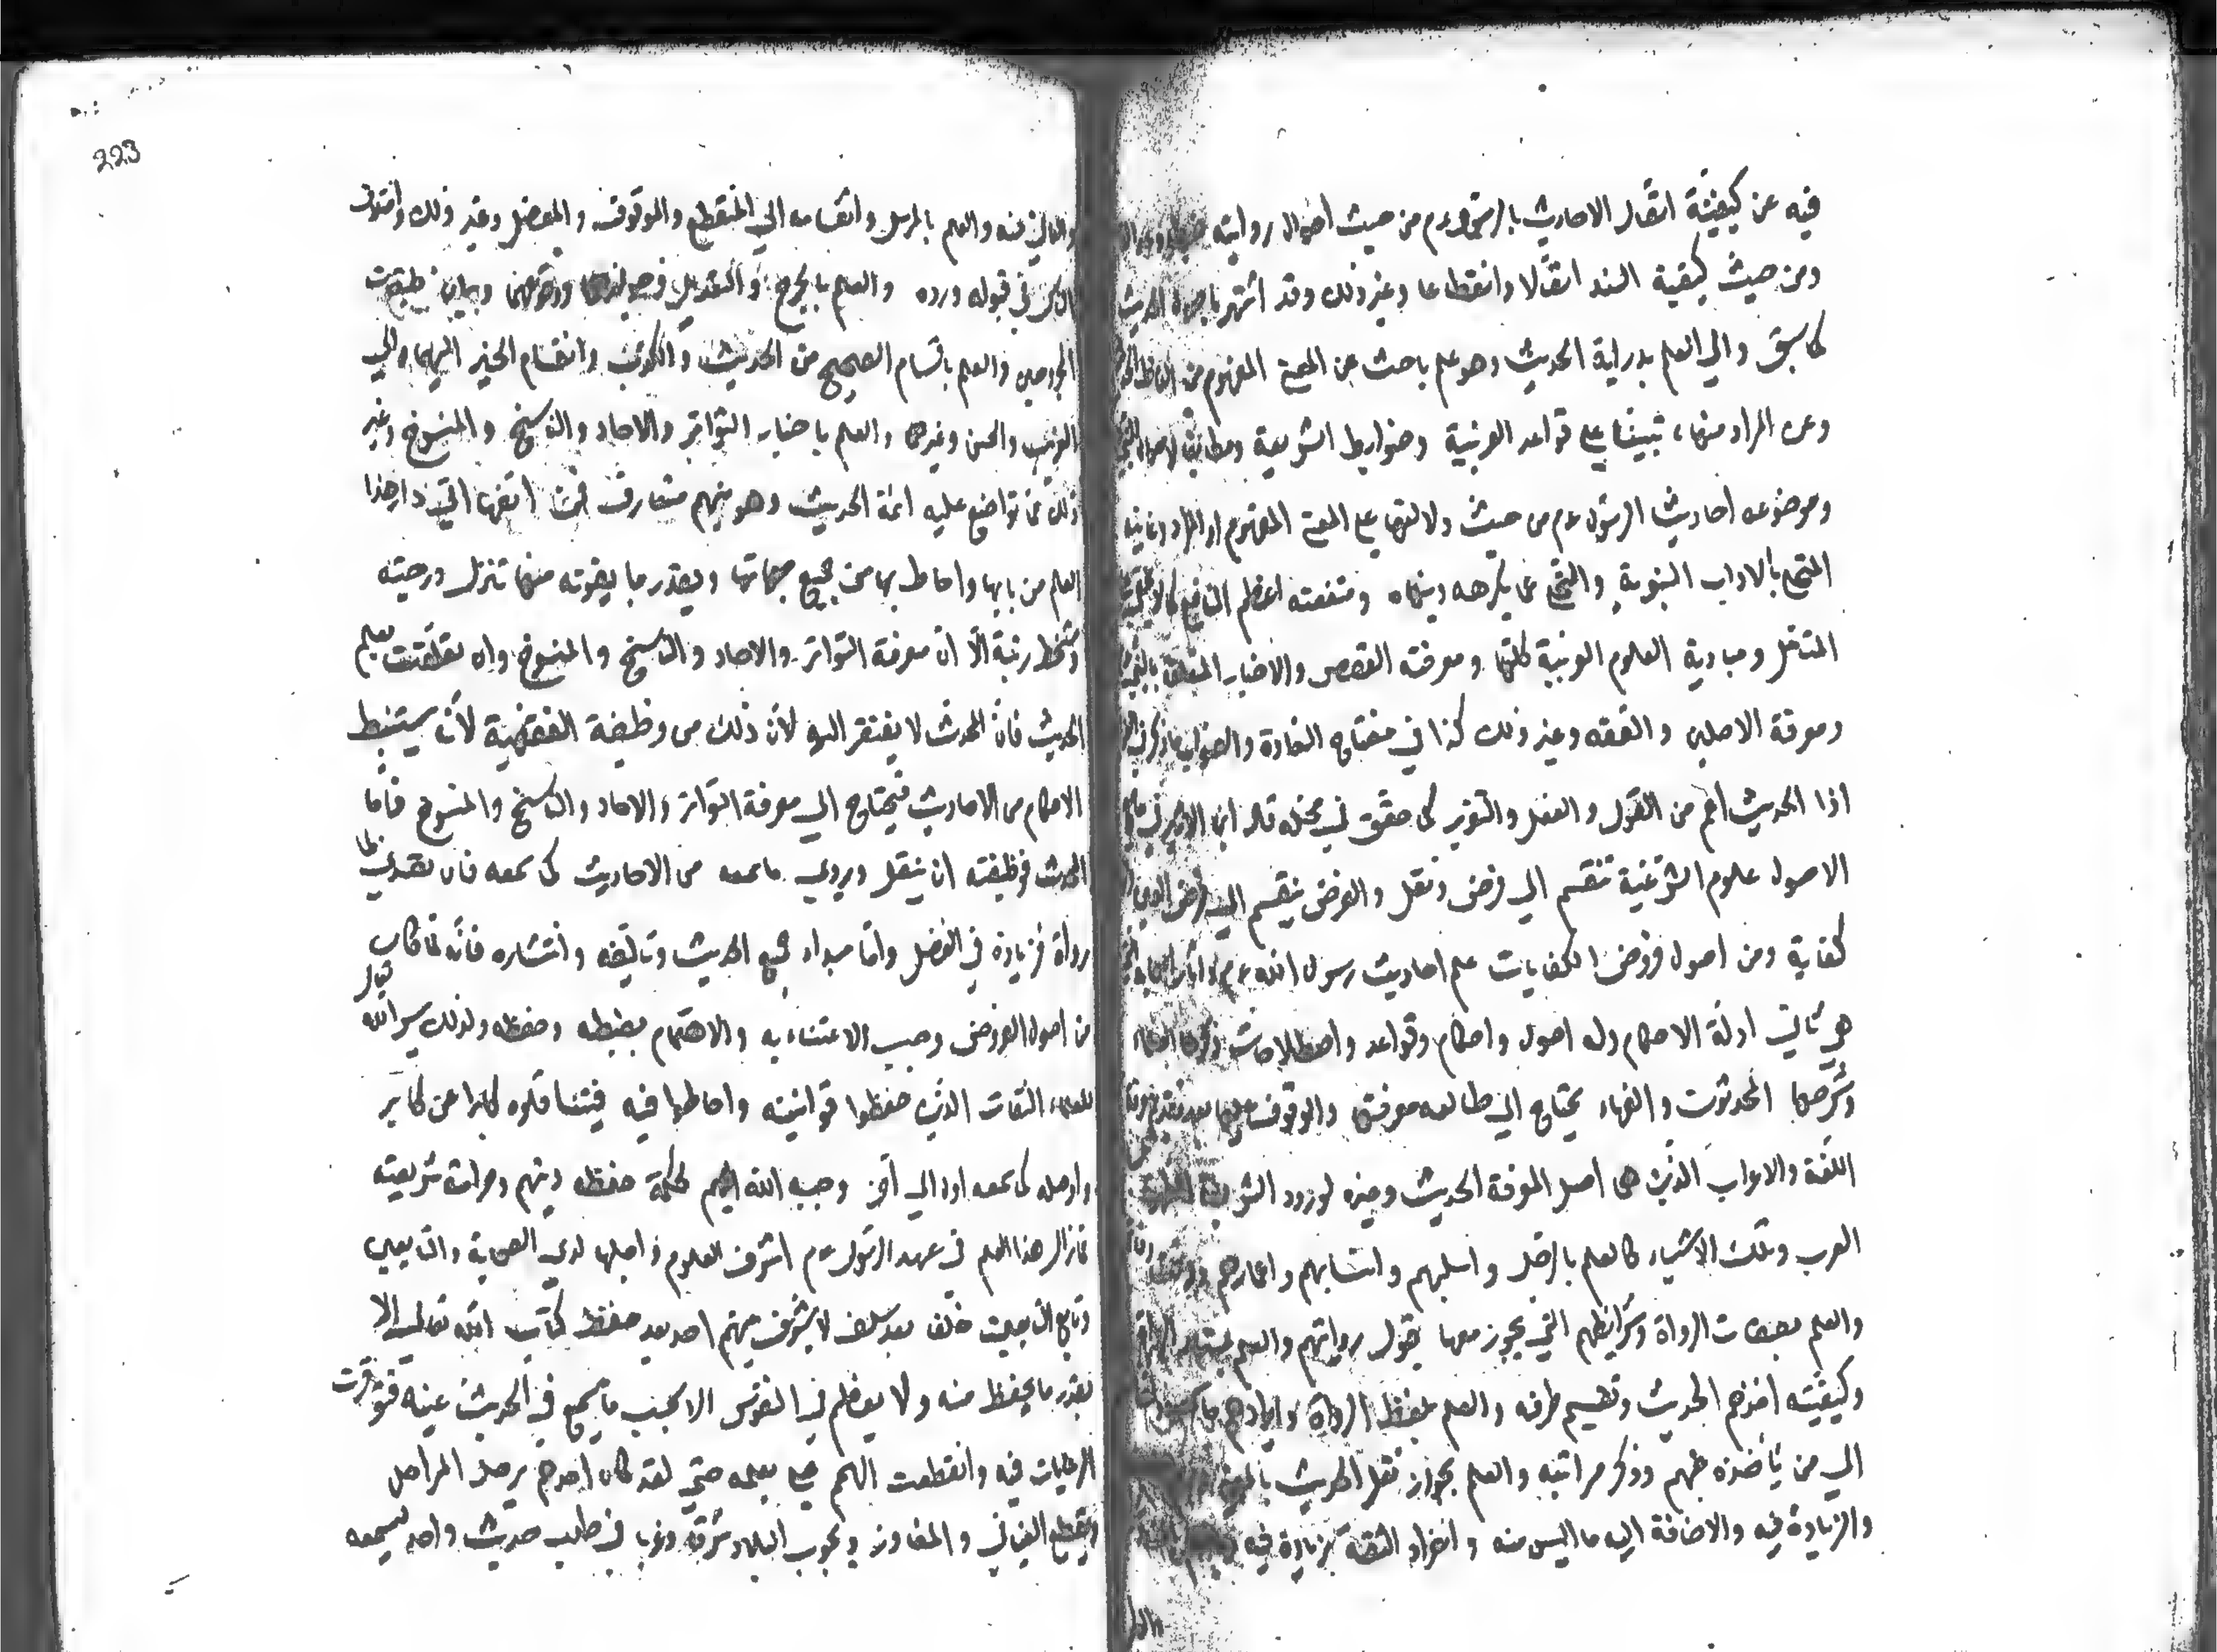 فيه عن كيفية اتصال الاحاديث بالرسول عم من حيث احوال رواته
ومن حيث كيفية السند اتصالا وانقطاعا وغير ذلك وقد اشتهر باصول الحديث
كما سبق والى العلم بدراية الحديث وهو علم باحث عن المعنى المفهوم من الفاظ الحديث
وعن المراد منها مبنيا على قواعد العربية وضوابط الشريعة ومطابقا لاحوال النبي
وموضوعه احاديث الرسول عم من حيث دلالتها على المعنى المفهوم او المراد وغايته
التحلي بالاداب النبوية والتخلي عما يكرهه وينهاه ومنفعته اعظم المنافع كما لا يخفى على
المتأمل ومباديه العلوم العربية كلها ومعرفة القصص والاخبار المتعلقة بالنبي
ومعرفة الاصلين والفقه وغير ذلك كذا في مفتاح السعادة والصواب ما ذكر في
اذا الحديث اعم من القول والفعل والتقرير كما حقق في محله قال ابن الاثير في جامع
الاصول علوم الشرعية تنقسم الى فرض ونفل والفرض ينقسم الى فرض العين
كفاية ومن اصول فروض الكفايات علم احاديث رسول الله عم واثار اصحابه التي
هي ثاني ادلة الاحكام وله اصول واحكام وقواعد واصطلاحات ذكرها العلماء
وشرحها المحدثون والفقهاء يحتاج الى طالبه معرفتها والوقوف عليها بعد تقديم معرفة
اللغة والاعراب الذين هى اصل لمعرفة الحديث وغيره لورود الشريعة المطهرة
العرب وتلك الاشياء كالعلم بالرجال واساميهم وانسابهم واعمارهم ووقت
والعلم بصفات الرواة وشرائطهم التي يجوز معها قبول روايتهم والعلم بمستند الرواة
وكيفية اخذهم الحديث وتقسيم طرقه والعلم بلفظ الرواة وايرادهم ما سمعوه
الى من يأخذه عنهم وذكر مراتبه والعلم بجواز نقل الحديث بالمعنى
والزيادة فيه والاضافة اليه ما ليس منه وانفراد الثقة بزيادة فيه
223
والعالي منه والعلم بالمرسل وانقسامه الى المنقطع والموقوف والمعضل وغير ذلك واختلاف
الناس في قبوله ورده والعلم بالجرح والتعديل وجوازهما ووقوعهما وبيان طبقات
المجروحين والعلم باقسام الصحيح من الحديث والكذب وانقسام الخبر اليهما والى
الغريب والحسن وغيرهما والعلم باخبار التواتر والاحاد والناسخ والمنسوخ وغير
ذلك مما تواضع عليه ائمة الحديث وهو بينهم متعارف فمن اتقنها اتى دار هذا
العلم من بابها واحاط بها من جميع جهاتها وبقدر ما يفوته منها تنزل درجته
وتنحط رتبته الا ان معرفة التواتر والاحاد والناسخ والمنسوخ وان تعلقت بعلم
الحديث فان المحدث لا يفتقر اليه لان ذلك من وظيفة الفقيه لانه يستنبط
الاحكام من الاحاديث فيحتاج الى معرفة التواتر والاحاد والناسخ والمنسوخ فاما
المحدث فوظيفته ان ينقل ويروي ما سمعه من الاحاديث كما سمعه فان تصدى لما
رواه فزيادة في الفضل واما مبداء جمع الحديث وتأليفه وانتشاره فانه لما كان
من اصول الفروض وجب الاعتناء به والاهتمام بضبطه وحفظه ولذلك يسر الله تعالى
للعلماء الثقات الذين حفظوا قوانينه واحاطوا فيه فتناقلوه كابرا عن كابر
واوصله كما سمعه اول الى آخر وحببه الله اليهم لحكمة حفظ دينهم وحراسة شريعته
فما زال هذا العلم في عهد الرسول عم اشرف العلوم واجلها لدى الصحابة والتابعين
وتابع التابعين خلفا بعد سلف لا يشرف بينهم احد بعد حفظ كتاب الله تعالى الا
بقدر ما يحفظ منه ولا يعظم في النفوس الا بحسب ما يسمع في الحديث عنه فتوفرت
الرغبات فيه وانقطعت الهمم على تعلمه حتى لقد كان احدهم يرحل المراحل
ويقطع الفيافي والمفاوز ويجوب البلاد شرقا وغربا في طلب حديث واحد ليسمعه